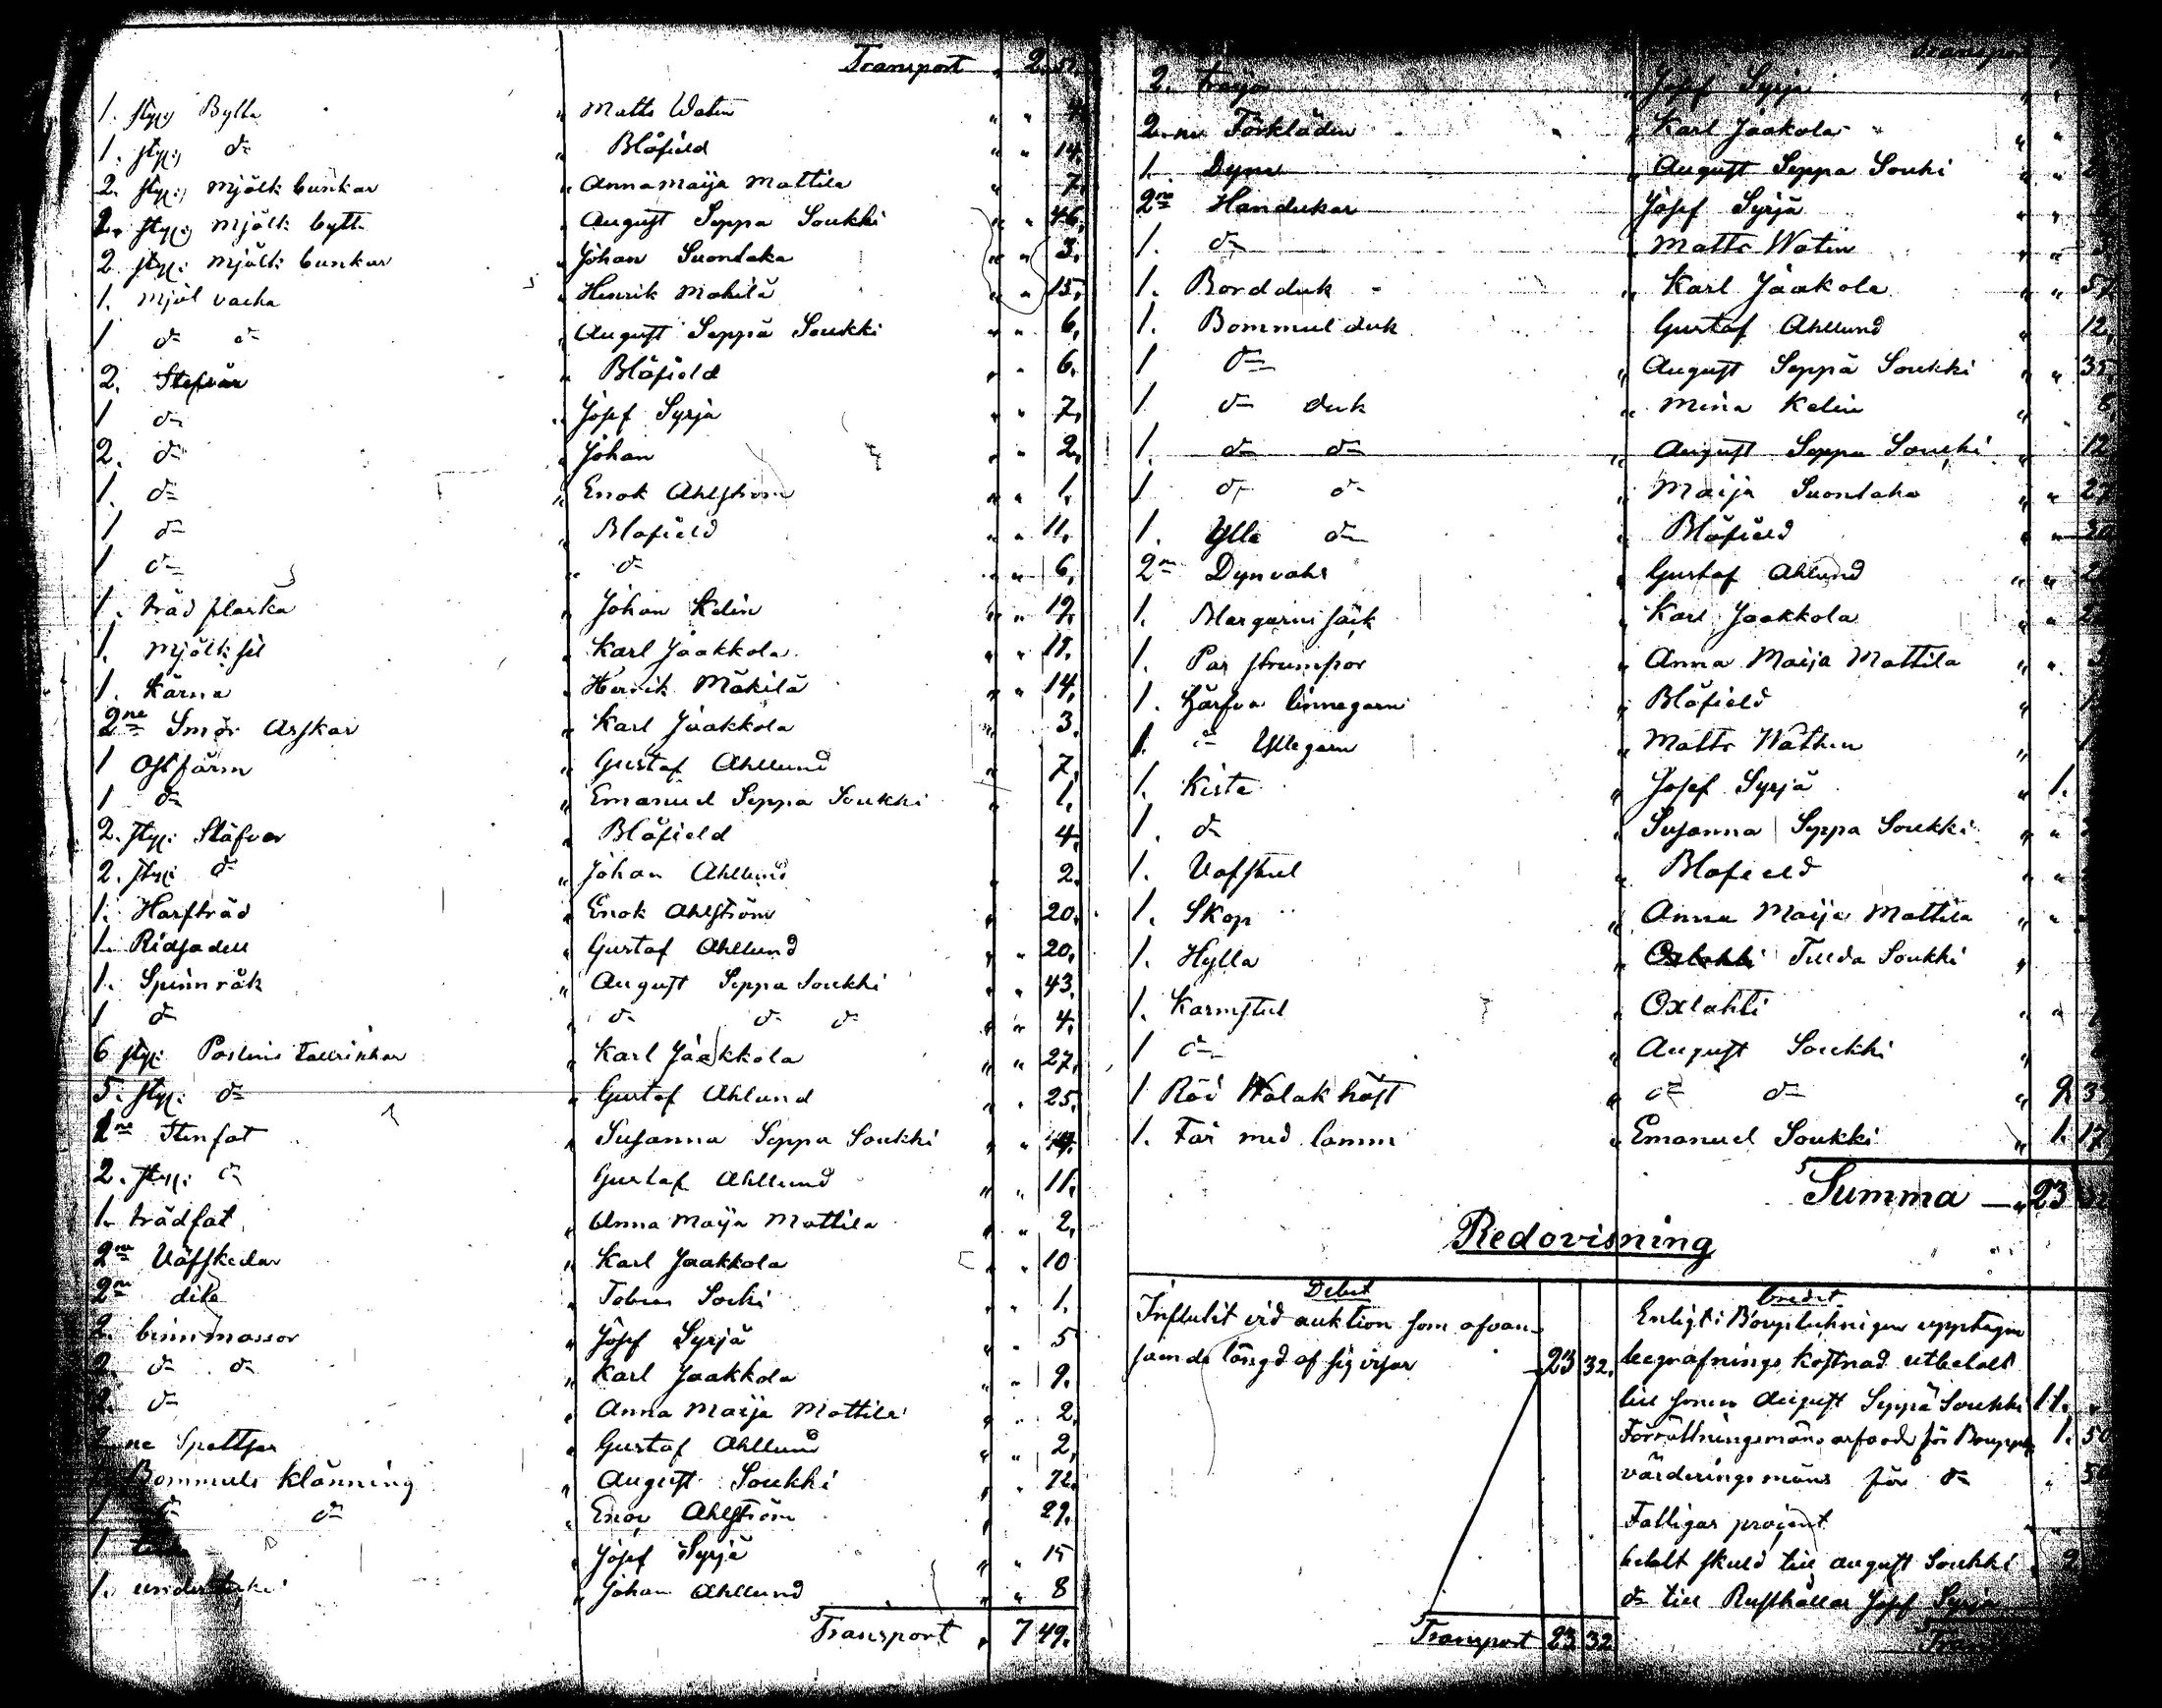 Transport " 2. 51.
1. styc: Bytta " Matts Watén " "
1. styc: do " Blåfield " " 14.
2. styc: mjölk bunkar " Annamaija Mattila " " 7.
2. styc: mjölk bytt " August Seppä Soukki " " 46.
2 styc: mjölk bunkar " Johan Suontaka " " 3.
1. mjöl vacka " Henrik Mäkilä " " 15.
1 do do " August Seppä Soukki " " 6.
2. " Blåfield " " 6.
1 do " Josef Syrjä " " 7.
2. do " Johan " " 2.
1. do " Enok Ahlström " " 1.
1 do " Blåfield " " 11.
1 do " do " " 6.
1. träd flaska " Johan Kelin " " 19.
1. Mjölk sil " Karl Jaakkola " " 18.
1. Kärna " Henrik Mäkilä " " 14.
2ne Smör Askar " Karl Jaakkola " 3.
1 Ostform " Gustaf Ahllund " 7.
1 do " Emanuel Seppä Soukki " 1.
2. styc: Stäfvor " Blåfield 4.
2. styc: do " Johan Ahllund " 2.
1. Harfträd " Enok Ahlström " 20.
1. Ridsadell " Gustaf Ahllund " " 20.
1. Spinnråk " August Seppä Soukki " " 43.
1 do " do do do " " 4.
6 styc: Poslins tallrikkar " Karl Jaakkola " " 27.
5. styc: do " Gustaf Ahlund " " 25.
2ne Stenfat " Susanna Seppä Soukki " "
2. styc: do Gustaf Ahllund " " 11.
1. trädfat " Anna Maija Mattila " " 2.
2ne Väfskedar " Karl Jaakkola " " 10
2ne dito " Tobias Soki " " 1.
2. binnmassor " Josef Syrjä " " 5
2. do do " Karl Jaakkola " " 9.
2. do " Anna Maija Mattila " " 2.
2ne Spettsar " Gustaf Ahllund " " 2.
Bommuls Klänning " August Soukki " " 72.
1 do do " Enok Ahlström " 29.
1 " Josef Syrjä " " 15
1. " Johan Ahllund " " 8
Transport " 7 49.
Transport
2. tröjor " Josef Syrjä " "
2ne Förkläden " Karl Jaakola " "
1. Dyna " August Seppä Souki " "
2ne Handukar Josef Syrjä " "
1. do " Matts Watin " "
1. Bordduk " Karl Jaakola " " 57
1. Bommul duk " Gustaf Ahllund " 12.
1 do " August Seppä Soukki " " 35.
1 do duk " Mina Kelin " 8.
1. do do " August Seppä Soucki " 12
1 do do " Maija Suontaka " " 27
1. Ylle do " Blåfield " " 20
2ne Dynvahr " Gustaf Ahlund " "
1. Margarns säck " Karl Jaakkola " "
1. Par strumpor " Anna Maija Mattila " "
1. Härfva linnegarn " Blåfield "
1. do Yllegarn " Matts Wathen "
1. Kista " Josef Syrjä " 1.
1. do " Susanna Seppä Soukki " "
1. Vafstul " Blåfield " "
1. Skop " Anna Maija Mattila " "
1. Hylla " Tillda Soukki "
1. Karmstul " Oxlahti " "
1 do " August Soukki "
1 Röd Walak häst " do do " 2 3
1. Får med lamm " Emanuel Soukki " 1. 17
Summa — " 23 32
Redovisning
Debet
Influtit vid auktion som ofvan-
staende längd af sig visar — 23 32.
Transport 23 32
Credit
Enligt Bouptekningen upptagen
begrafnings Kostnad utbetalt
till sonen August Seppä Soukki 11. "
Förrättningsmäns arfvode för Boupp 1. 50
värderings mäns för do " 50
Fattigas procent
betalt skuld till august Soukki . 2
do till Rusthållar Josef Syrjä